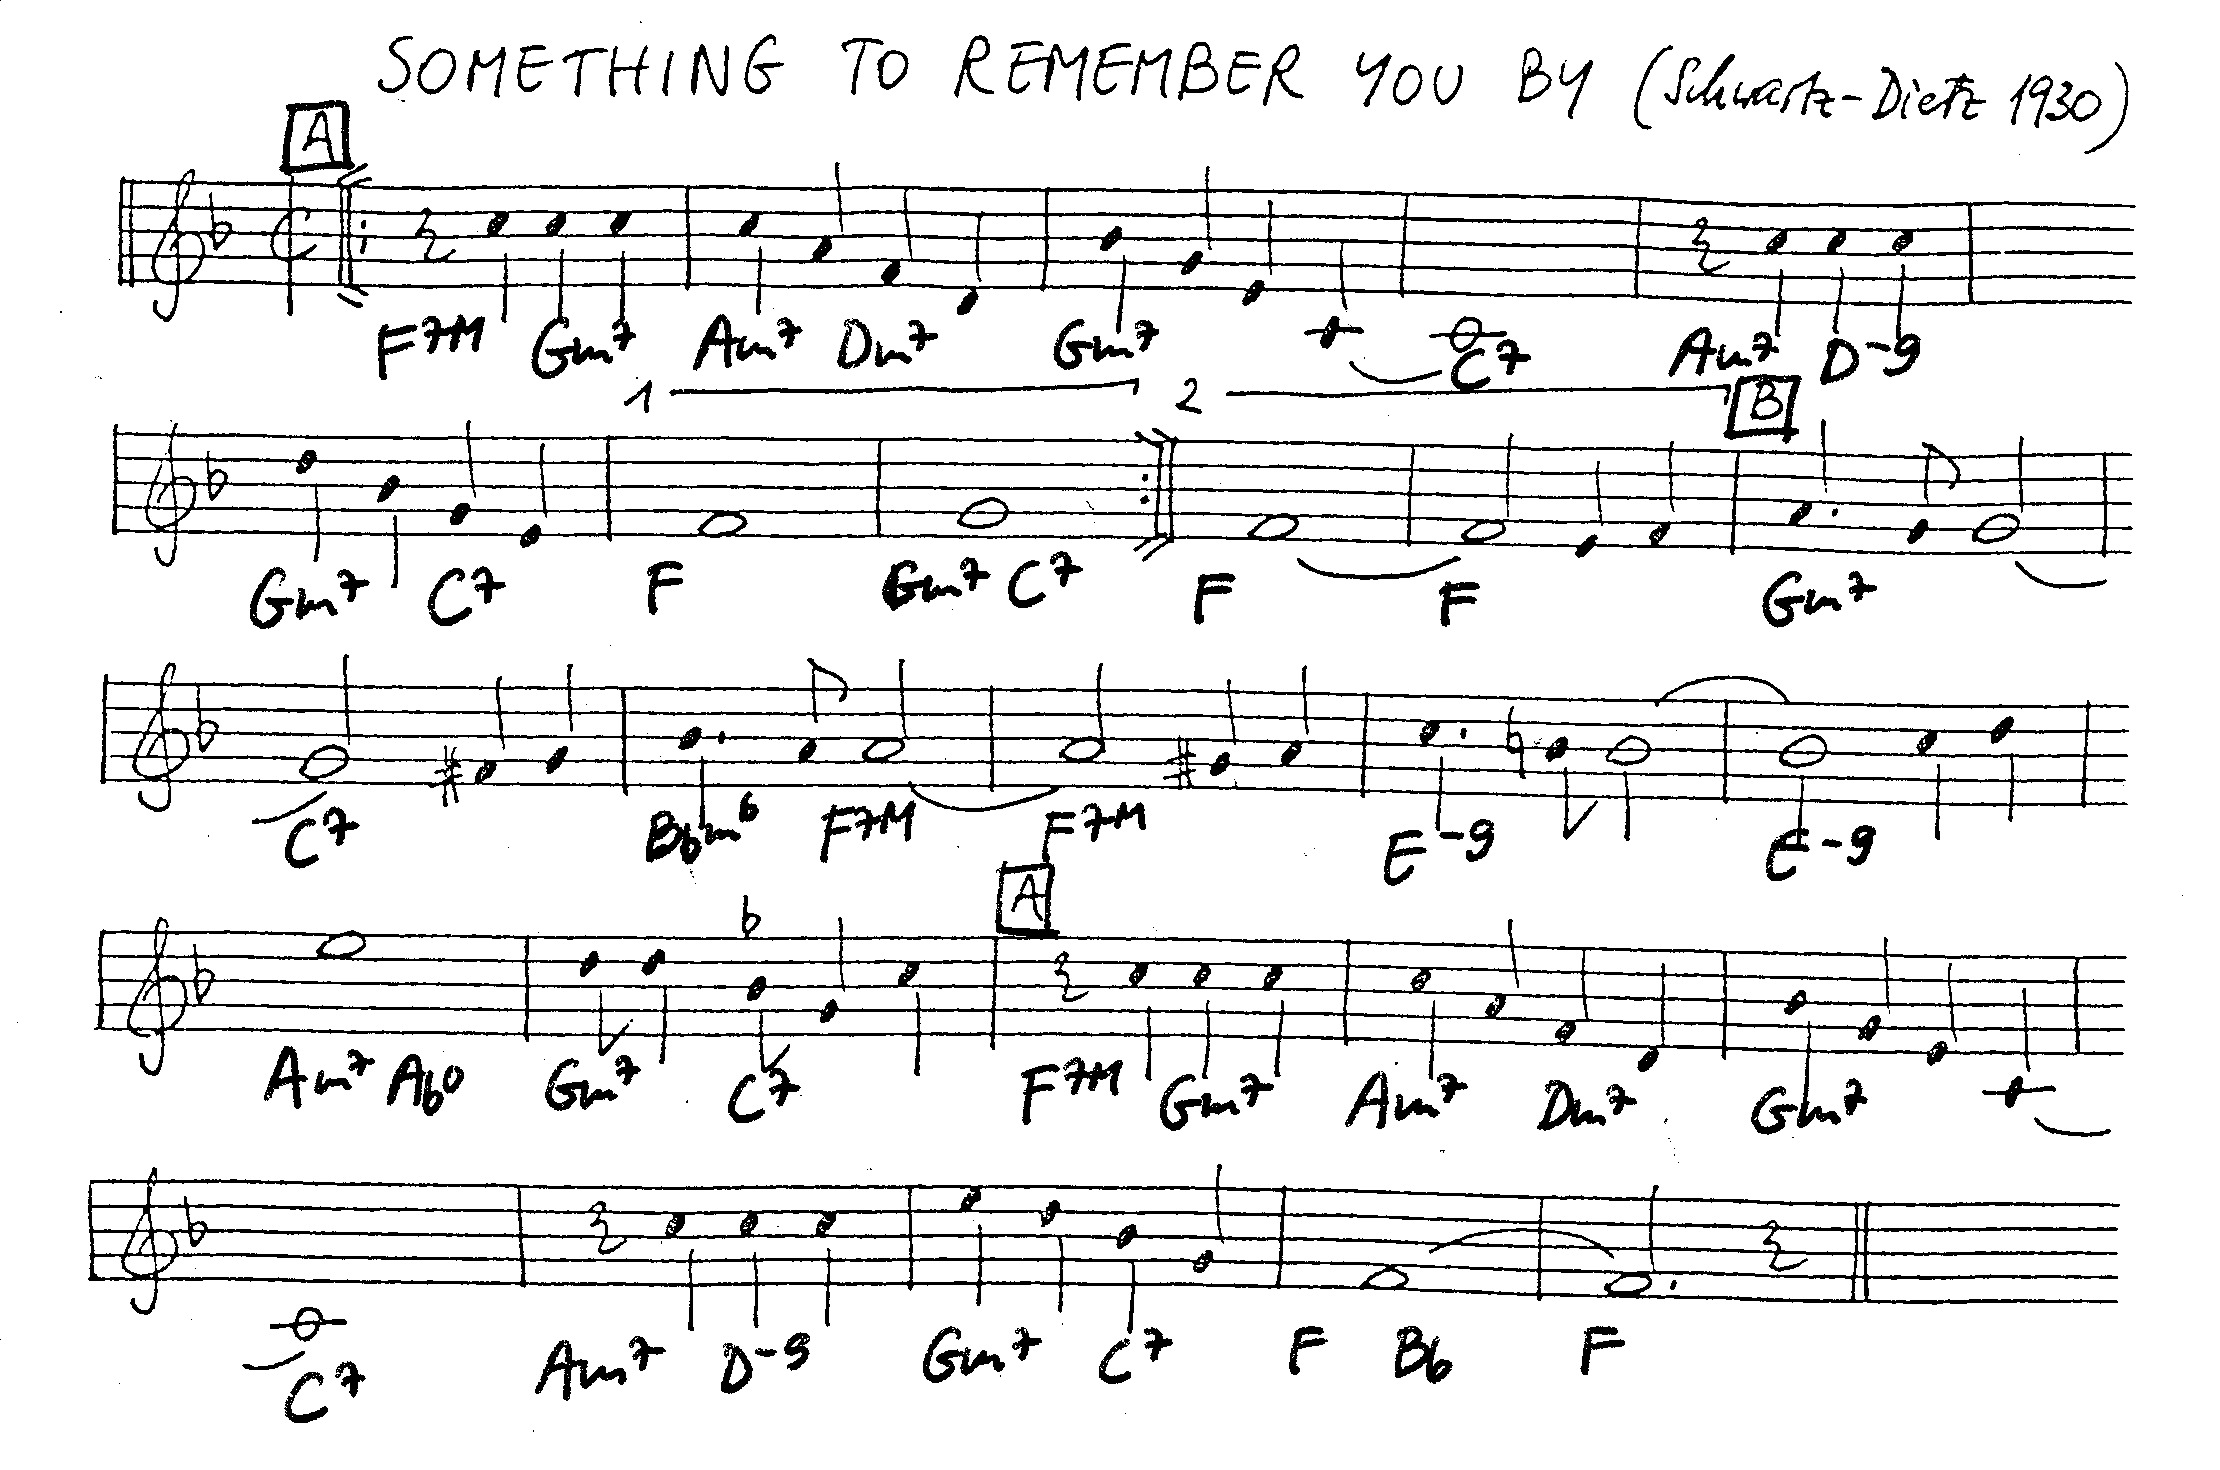 SOMETHING TO REMEMBER YOU BY (Schwartz-Dietz 1930)
A
F7M Gm7 Am7 Dm7 Gm7 C7 Am7 D-9
1 2 B
Gm7 C7 F Gm7 C7 F F Gm7
C7 Bbm6 F7M F7M E-9 E-9
A
Am7 Abo Gm7 C7 F7M Gm7 Am7 Dm7 Gm7
C7 Am7 D-9 Gm7 C7 F Bb F